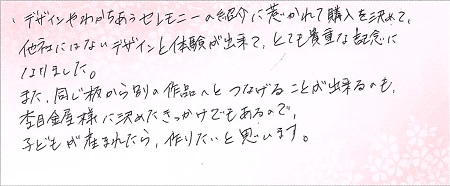 、デザインやわかちあうセレモニーの紹介に惹かれて購入を決めて、
他社にはないデザインと体験が出来て、とても貴重な記念に
なりました。
また、同じ板から別の作品へとつなげることが出来るのも、
杢目金屋様に決めたきっかけでもあるので、
子どもが産まれたら、作りたいと思います。